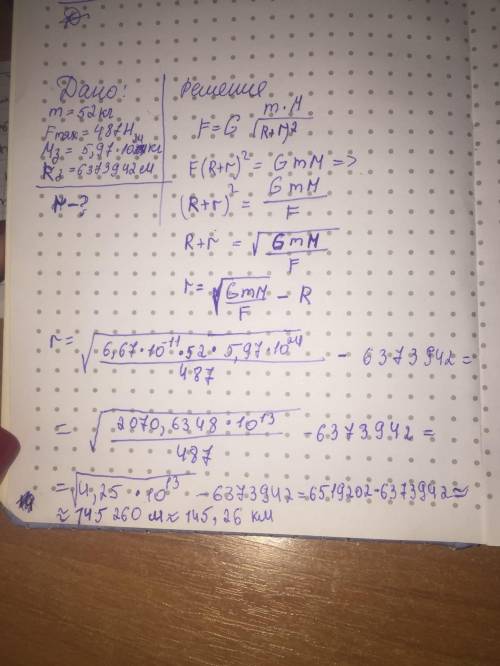 Дано:
m = 52 кг
Fтяж = 487 Н
Mз = 5,97 · 10²⁴ кг
Rз = 6373942 м
r - ?
Решение
F = G m · M / (R+r)²
F(R+r)² = GmM =>
(R+r)² = GmM / F
R+r = √(GmM / F)
r = √(GmM / F) - R
r = √(6,67 · 10⁻¹¹ · 52 · 5,97 · 10²⁴ / 487) - 6373942 =
= √(2070,6348 · 10¹³ / 487) - 6373942 =
= √(4,25 · 10¹³) - 6373942 = 6519202 - 6373942 ≈
≈ 145 260 м ≈ 145,26 км